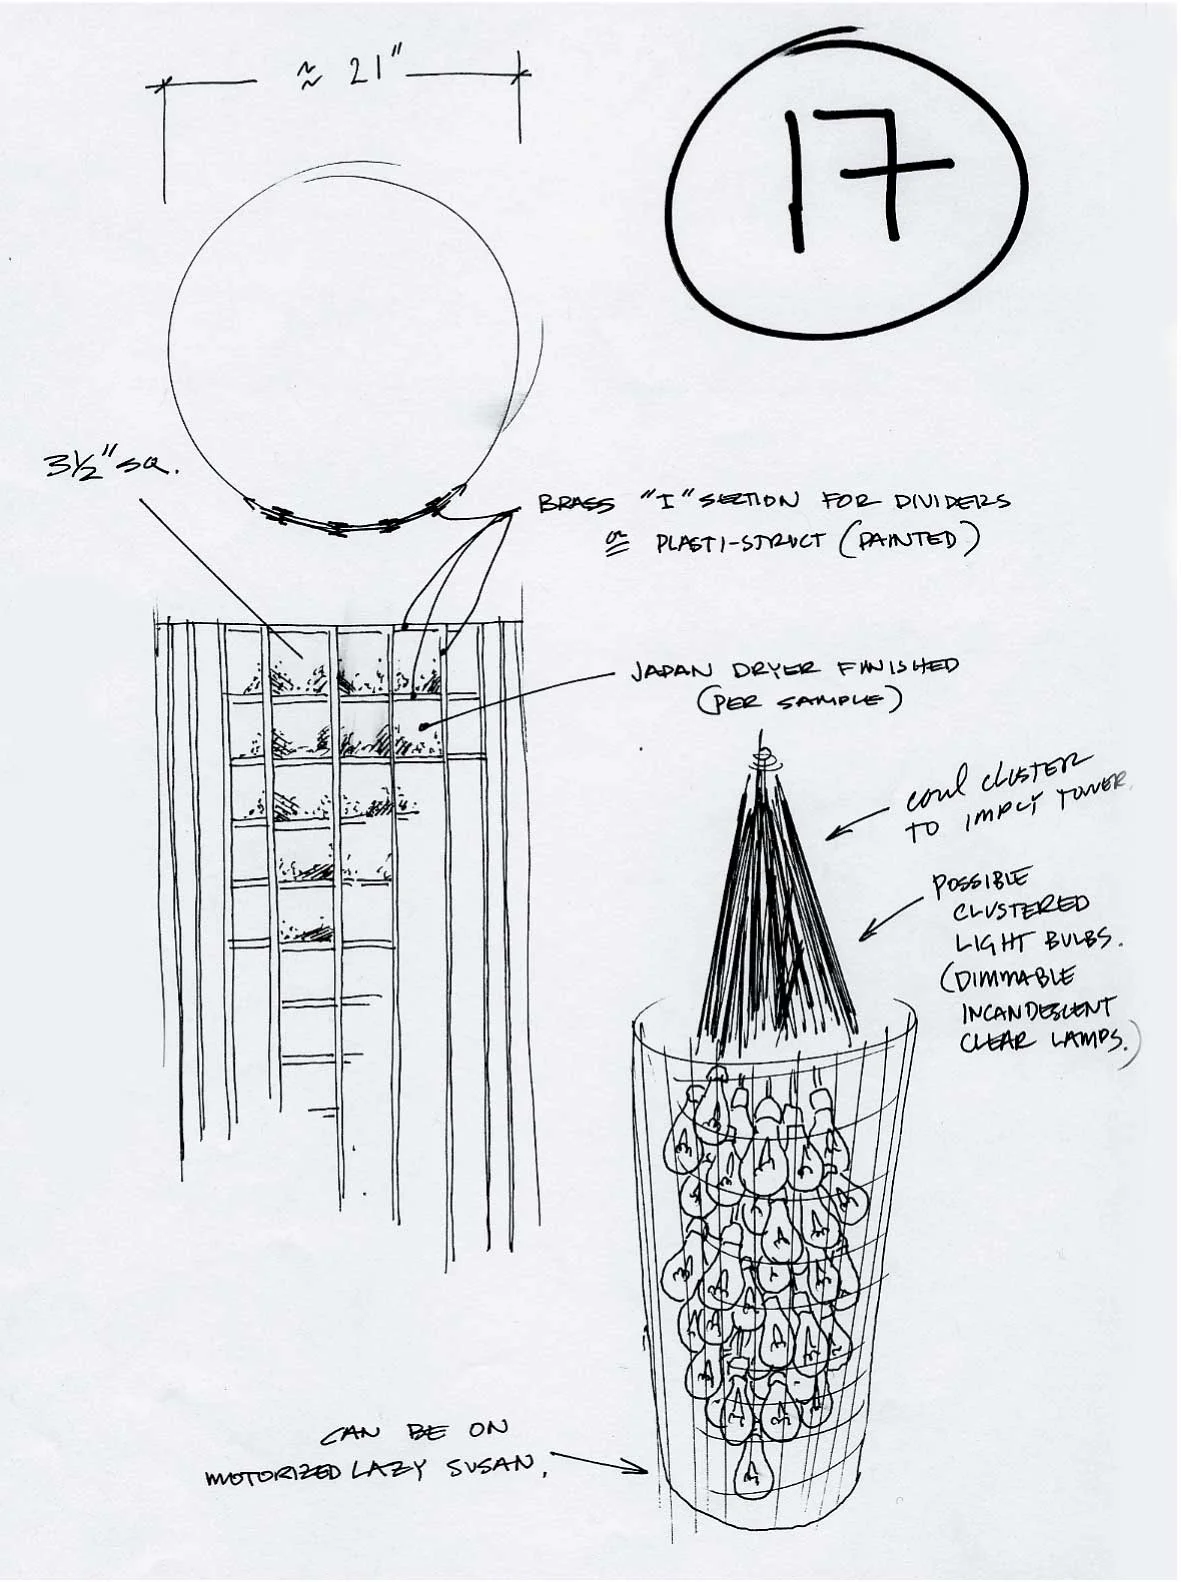 ≈ 21"
17
3½" SQ.
BRASS "I" SECTION FOR DIVIDERS
OR PLASTI-STRUCT (PAINTED)
JAPAN DRYER FINISHED
(PER SAMPLE)
CORD CLUSTER
TO IMPLY TOWER.
POSSIBLE
CLUSTERED
LIGHT BULBS.
(DIMMABLE
INCANDESCENT
CLEAR LAMPS.)
CAN BE ON
MOTORIZED LAZY SUSAN.